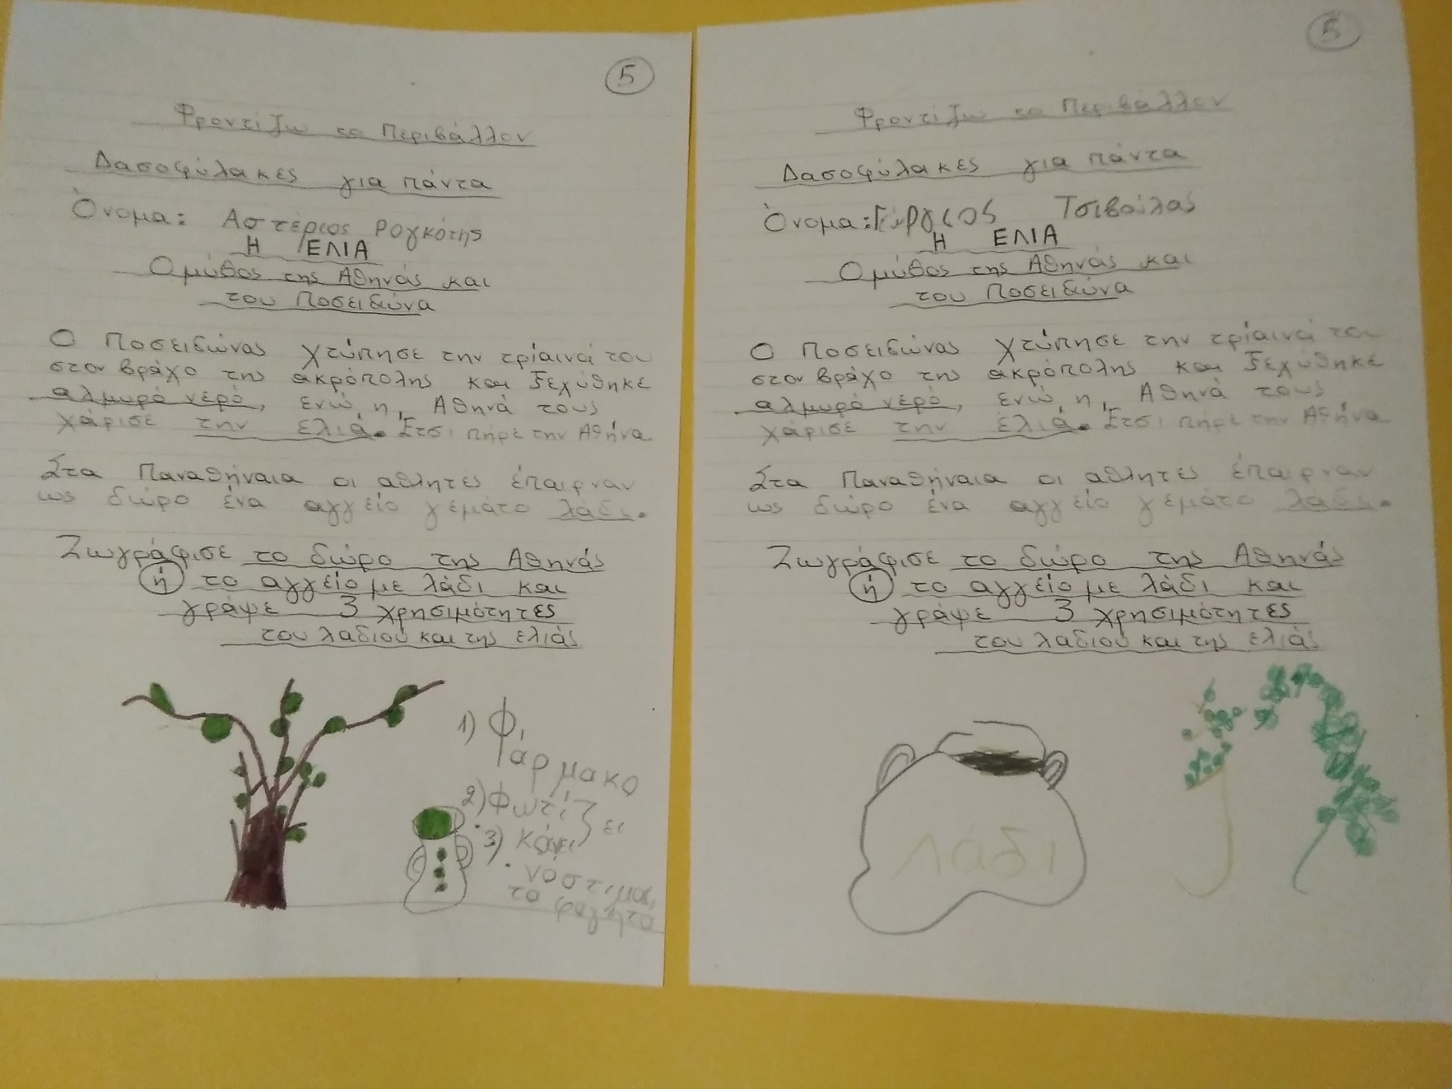 5
Φροντίζω το Περιβάλλον
Δασοφύλακες για πάντα
Όνομα: Αστέριος Ρογκότης
Η ΕΛΙΑ
Ο μύθος της Αθηνάς και
του Ποσειδώνα
Ο Ποσειδώνας χτύπησε την τρίαινά του
στον βράχο της ακρόπολης και ξεχύθηκε
αλμυρό νερό, ενώ η Αθηνά τους
χάρισε την ελιά. Έτσι πήρε την Αθήνα.
Στα Παναθήναια οι αθλητές έπαιρναν
ως δώρο ένα αγγείο γεμάτο λάδι.
Ζωγράφισε το δώρο της Αθηνάς
ή το αγγείο με λάδι και
γράψε 3 χρησιμότητες
του λαδιού και της ελιάς
1) Φάρμακο
2) Φωτίζει
3) κάνει
νοστιμο
το φαγητο
5
Φροντίζω το Περιβάλλον
Δασοφύλακες για πάντα
Όνομα: Γιώργος Τσιβούλας
Η ΕΛΙΑ
Ο μύθος της Αθηνάς και
του Ποσειδώνα
Ο Ποσειδώνας χτύπησε την τρίαινά του
στον βράχο της ακρόπολης και ξεχύθηκε
αλμυρό νερό, ενώ η Αθηνά τους
χάρισε την ελιά. Έτσι πήρε την Αθήνα.
Στα Παναθήναια οι αθλητές έπαιρναν
ως δώρο ένα αγγείο γεμάτο λάδι.
Ζωγράφισε το δώρο της Αθηνάς
ή το αγγείο με λάδι και
γράψε 3 χρησιμότητες
του λαδιού και της ελιάς
λάδι